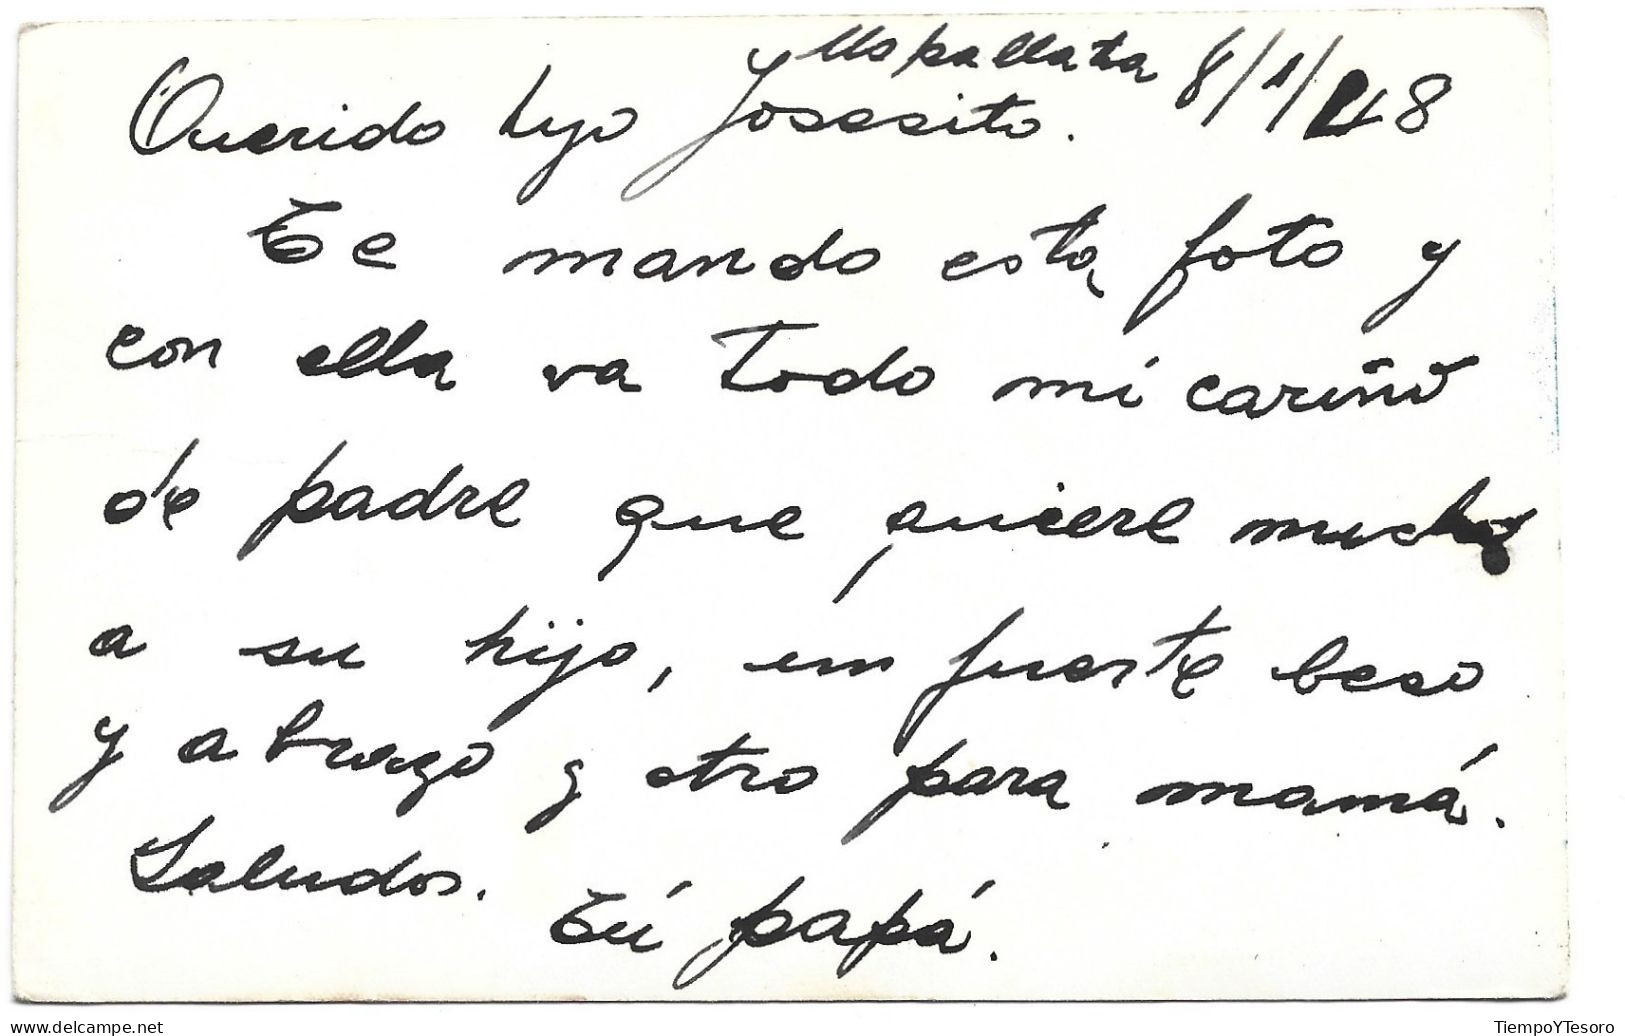 Uspallata 8/1/48
Querido hijo Josesito.
Te mando esta foto y
con ella va todo mi cariño
de padre que quiere mucho
a su hijo, un fuerte beso
y abrazo y otro para mamá.
Saludos. Tú papá.
delcampe.net
TiempoYTesoro